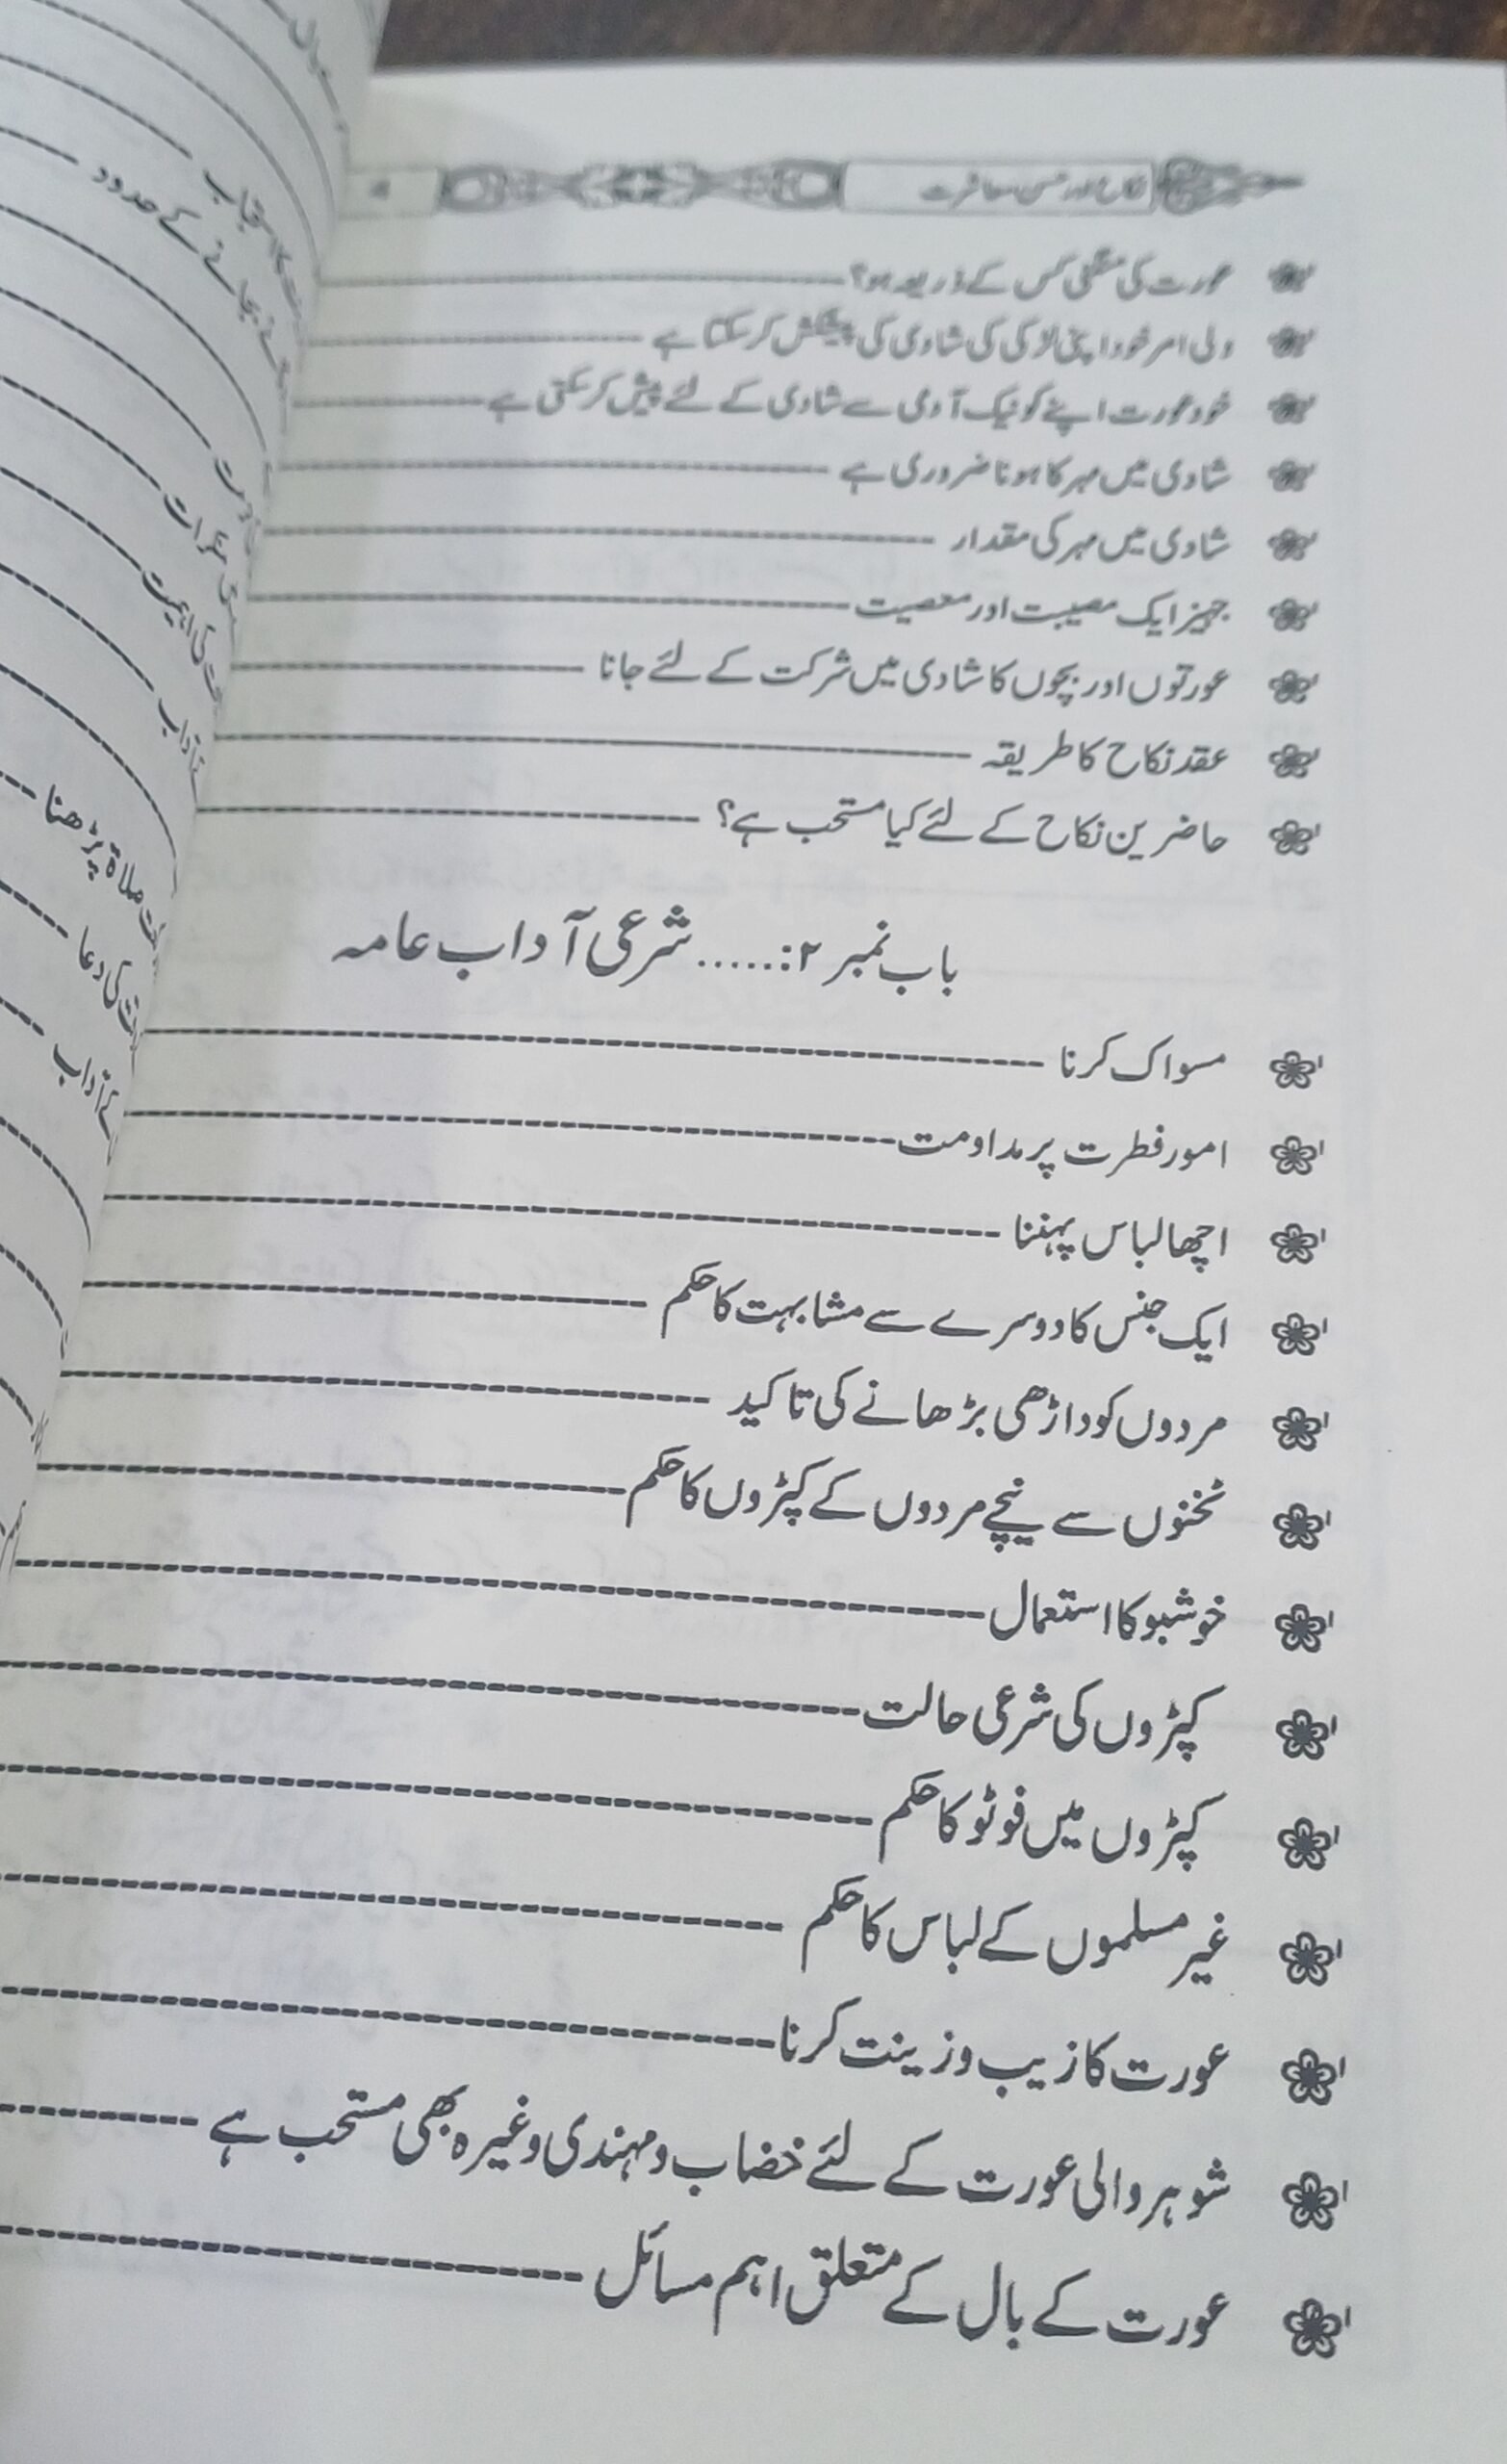 نکاح اور حسن معاشرت
عورت کی منگنی کس کے ذریعہ ہو؟
ولی امر خود اپنی لڑکی کی شادی کی پیشکش کر سکتا ہے
خود عورت اپنے کو نیک آدمی سے شادی کے لئے پیش کر سکتی ہے
شادی میں مہر کا ہونا ضروری ہے
شادی میں مہر کی مقدار
جہیز ایک مصیبت اور معصیت
عورتوں اور بچوں کا شادی میں شرکت کے لئے جانا
عقد نکاح کا طریقہ
حاضرین نکاح کے لئے کیا مستحب ہے؟
باب نمبر ۲:..... شرعی آداب عامہ
مسواک کرنا
امور فطرت پر مداومت
اچھا لباس پہننا
ایک جنس کا دوسرے سے مشابہت کا حکم
مردوں کو داڑھی بڑھانے کی تاکید
ٹخنوں سے نیچے مردوں کے کپڑوں کا حکم
خوشبو کا استعمال
کپڑوں کی شرعی حالت
کپڑوں میں فوٹو کا حکم
غیر مسلموں کے لباس کا حکم
عورت کا زیب و زینت کرنا
شوہر والی عورت کے لئے خضاب و مہندی وغیرہ بھی مستحب ہے
عورت کے بال کے متعلق اہم مسائل
بجانے کے حدود
منکرات
کی اہمیت
آداب
صلاۃ پڑھنا
کی دعا
کے آداب